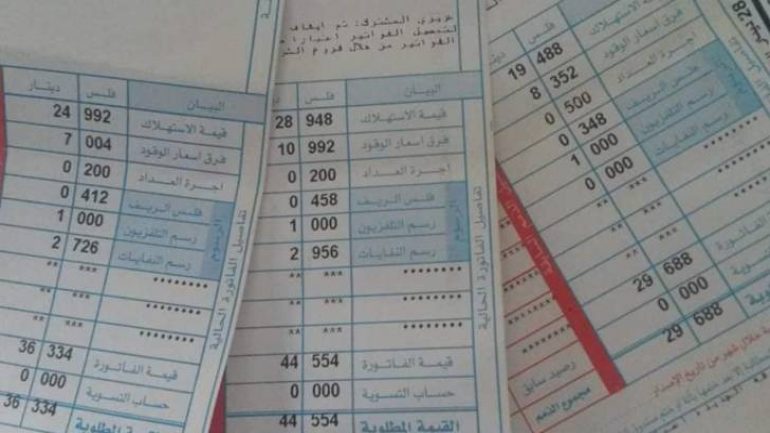 البيان فلس دينار
قيمة الاستهلاك 992 24
فرق اسعار الوقود 004 7
اجرة العداد 200 0
فلس الريف 412 0
رسم التلفزيون 000 1
رسم النفايات 726 2
******** ** ***
******** ** ***
******** ** ***
قيمة الفاتورة 334 36
حساب التسوية 000 0
334 36
الرسوم
تفاصيل الفاتورة الحالية
عزيزي المشترك: تم ايقاف
لتحصيل الفواتير اعتبارا
الفواتير من خلال فروع
البيان فلس دينار
قيمة الاستهلاك 948 28
فرق اسعار الوقود 992 10
اجرة العداد 200 0
فلس الريف 458 0
رسم التلفزيون 000 1
رسم النفايات 956 2
******** ** ***
******** ** ***
******** ** ***
قيمة الفاتورة 554 44
حساب التسوية 000 0
القيمة المطلوبة 554 44
الرسوم
تفاصيل الفاتورة الحالية
دينار
488 19
فرق اسعار الوقود 352 8
اجرة العداد 500 0
فلس الريف 348 0
رسم التلفزيون 000 1
رسم النفايات
******** ** ***
******** ** ***
******** ** ***
الفاتورة 688 29
000 0
688 29
رصيد سابق
مجموع الذمم
خلال شهر من تاريخ الإصدار